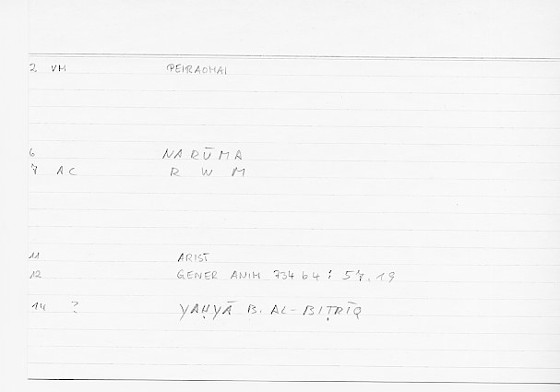 2 VH PEIRAOMAI
6 NARŪMA
7 AC R W M
11 ARIST
12 GENER ANIM 734 b 4 : 57.19
14 ? YAḤYĀ B. AL-BIṬRĪQ